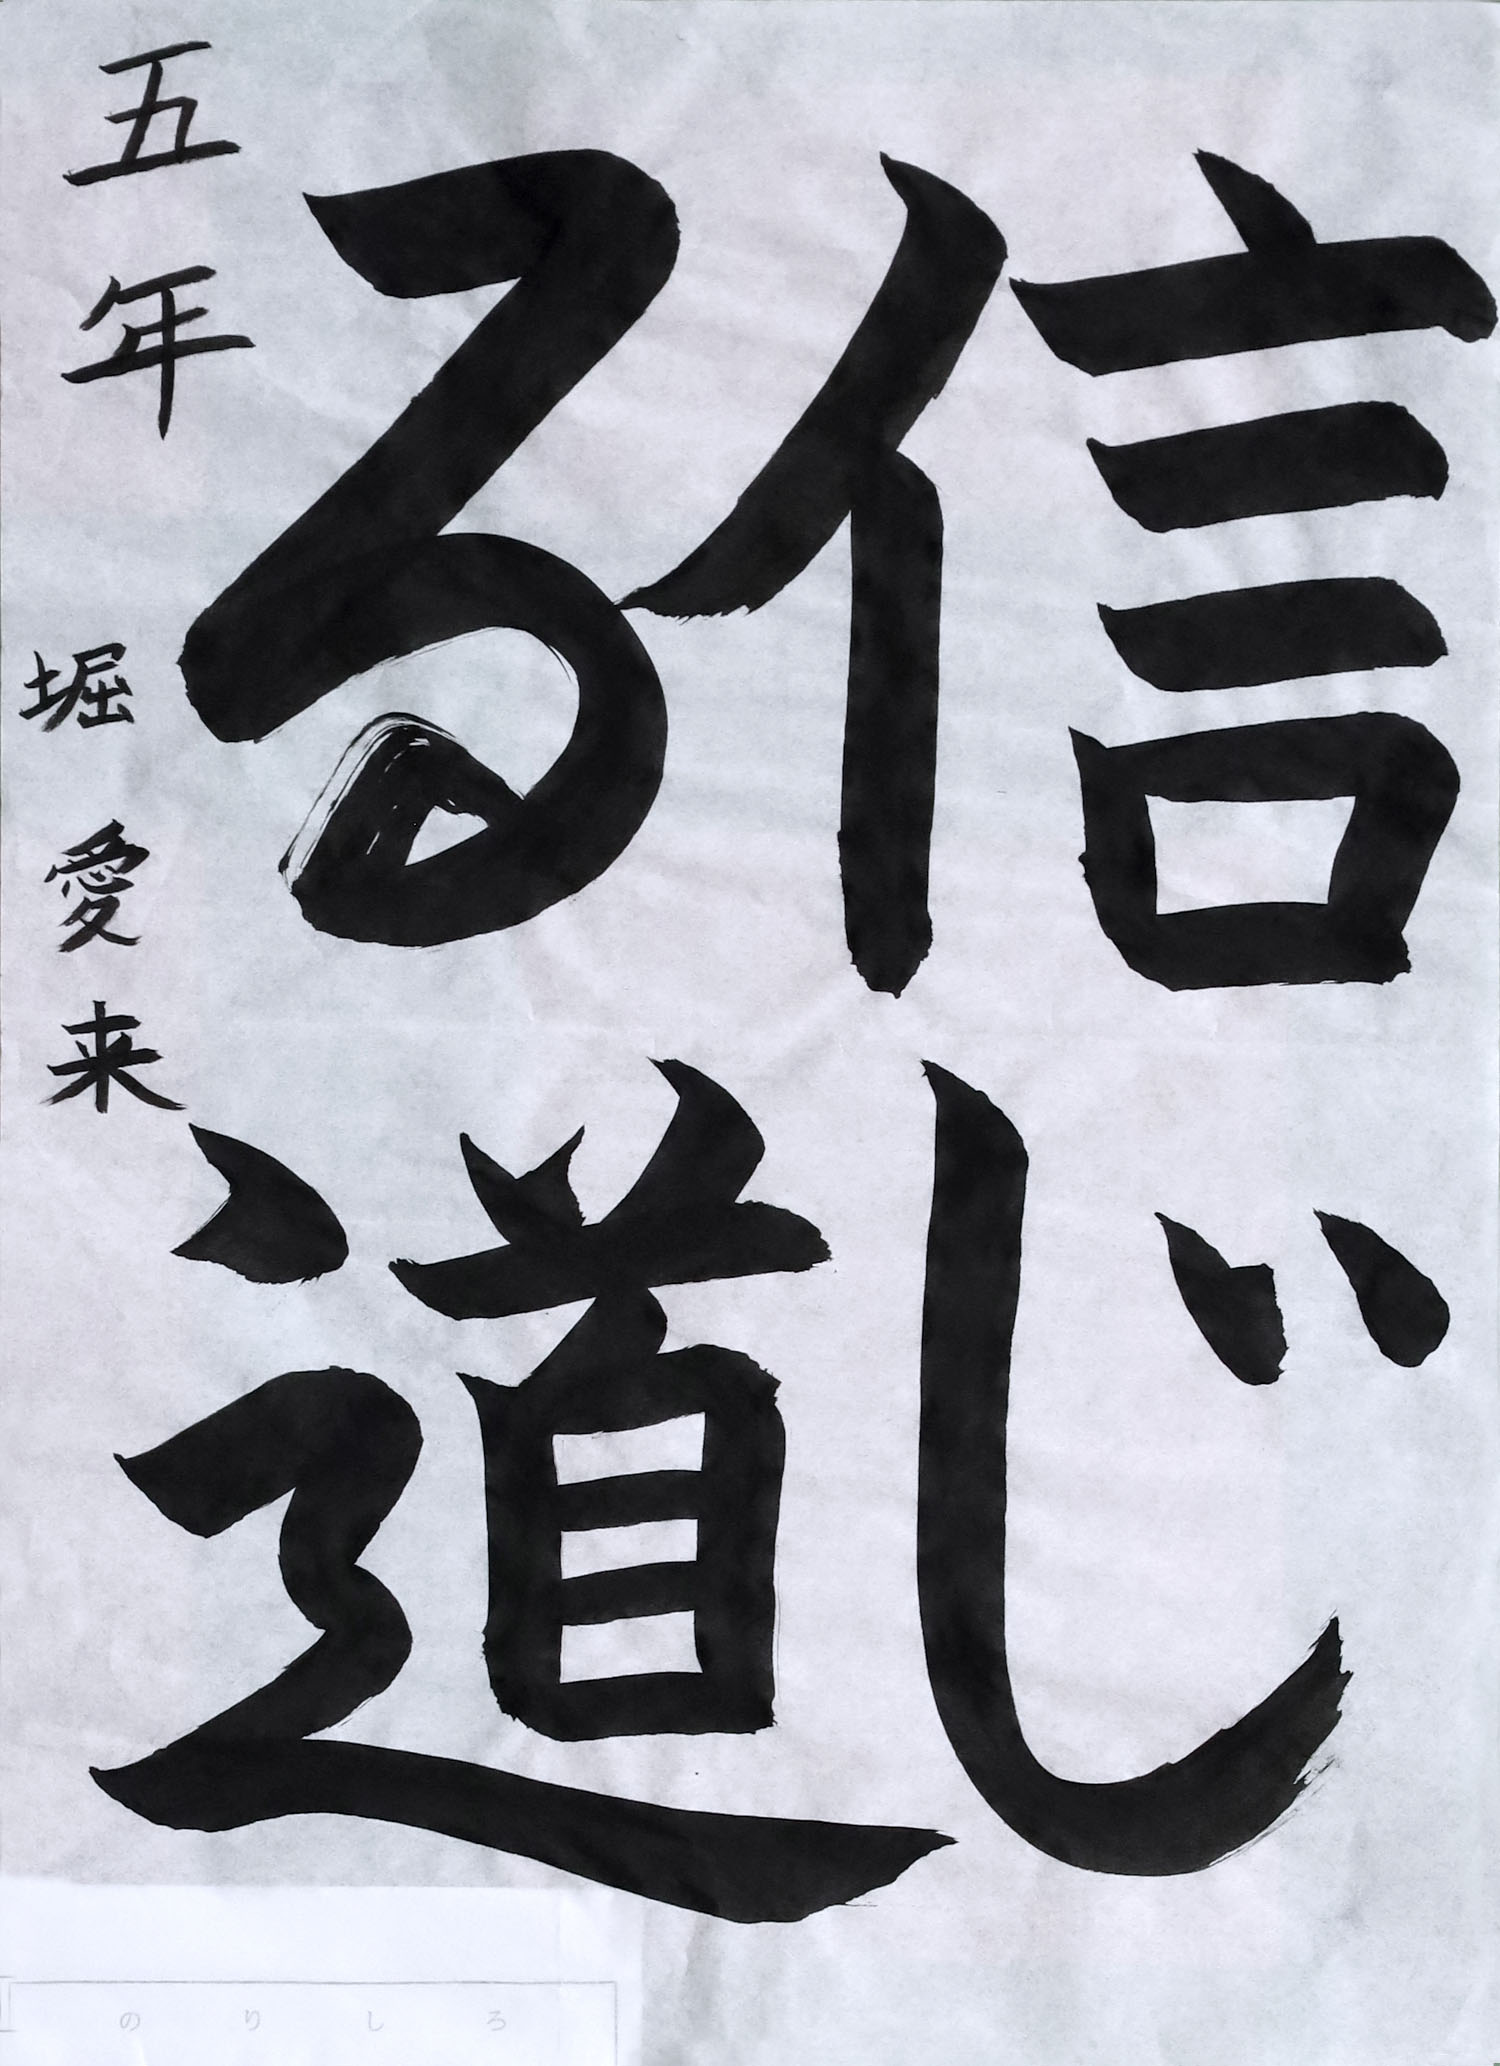 信じ
る道
五年 堀愛来
のりしろ